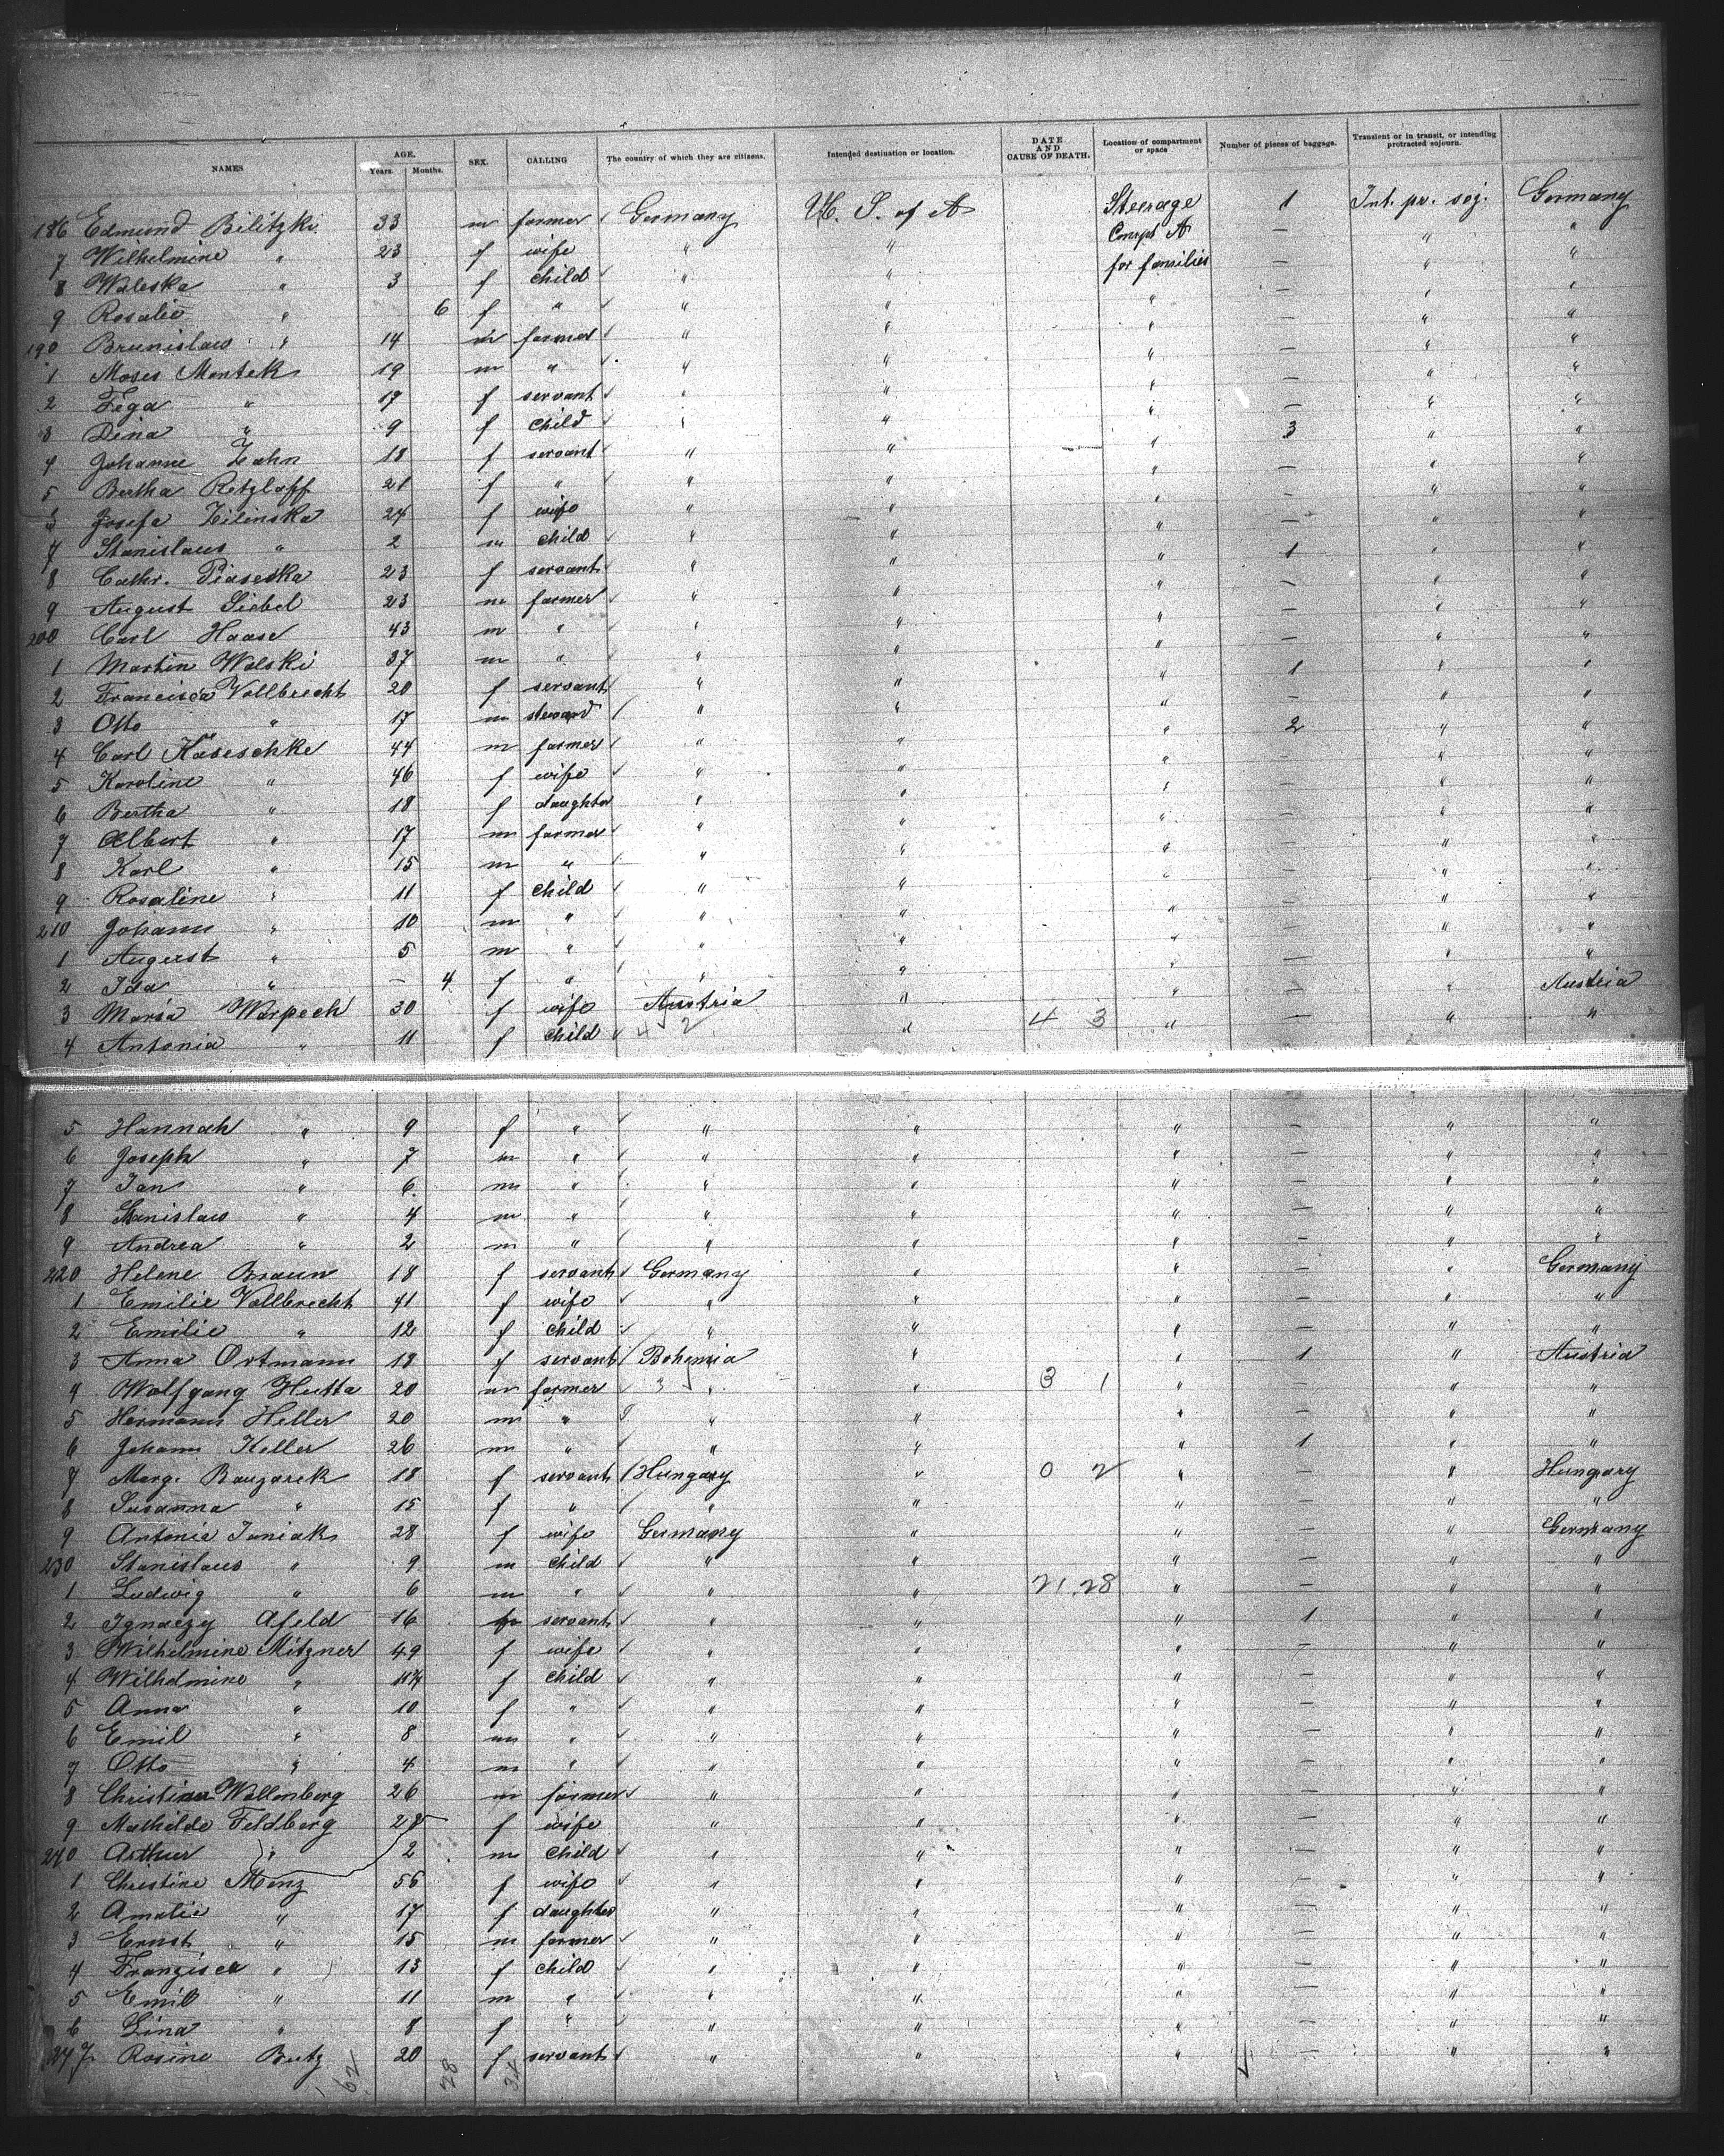 NAMES AGE. Years Months. SEX. CALLING The country of which they are citizens. Intended destination or location. DATE AND CAUSE OF DEATH. Location of compartment or space Number of pieces of baggage. Transient or in transit, or intending protracted sojourn.
186 Edmund Bilitzki 33 m farmer Germany U. S. of A Steerage 1 Int. pr. soj. Germany
7 Wilhelmine " 23 f wife " " Compt A — " "
8 Waleska " 3 f child " " for families — " "
9 Rosalie " 6 f " " " " — " "
190 Brunislaw " 14 m farmer " " " — " "
1 Moses Montek 19 m " " " " — " "
2 Fega " 17 f servant " " " — " "
3 Dina " 9 f child " " " — " "
4 Johanne Zahn 18 f servant " " " 3 " "
5 Bertha Retzlaff 21 f " " " " — " "
6 Josefa Zilinska 24 f wife " " " — " "
7 Stanislaus " 2 m child " " " — " "
8 Cathr. Piaseska 23 f servant " " " 1 " "
9 August Siebel 23 m farmer " " " — " "
200 Carl Haase 43 m " " " " — " "
1 Martin Walski 37 m " " " " — " "
2 Francisca Vollbrecht 20 f servant " " " 1 " "
3 Otto " 17 m steward " " " — " "
4 Carl Käseschke 44 m farmer " " " 2 " "
5 Karoline " 46 f wife " " " — " "
6 Bertha " 18 f daughter " " " — " "
7 Albert " 17 m farmer " " " — " "
8 Karl " 15 m " " " " — " "
9 Rosaline " 11 f child " " " — " "
210 Johann " 10 m " " " " — " "
1 August " 5 m " " " " — " "
2 Ida " — 4 f " " " " — " "
3 Maria Warpech 30 f wife Austria " " — " Austria
4 Antonia " 11 f child 4 2 " 4 3 " — " "
5 Hannah " 9 f " " " " — " "
6 Joseph " 7 m " " " " — " "
7 Jan " 6 m " " " " — " "
8 Stanislaw " 4 m " " " " — " "
9 Andrea " 2 m " " " " — " "
220 Helene Braun 18 f servant Germany " " — " Germany
1 Emilie Vollbrecht 41 f wife " " " — " "
2 Emilie " 12 f child " " " — " "
3 Anna Ortmann 18 f servant Bohemia " " 1 " Austria
4 Wolfgang Hutta 20 m farmer 3 " " 3 1 " — " "
5 Hermann Heller 20 m " " " " — " "
6 Johann Keller 26 m " " " " 1 " "
7 Marg. Bauzarek 18 f servant Hungary " 0 2 " — " Hungary
8 Susanna " 15 f " " " " — " "
9 Antonie Janiak 28 f wife Germany " " — " Germany
230 Stanislaus " 9 m child " " " — " "
1 Ludwig " 6 m " " " 21.28 " — " "
2 Ignaczy Afeld 16 m servant " " " 1 " "
3 Wilhelmine Mitzner 49 f wife " " " — " "
4 Wilhelmine " 11¾ f child " " " — " "
5 Anna " 10 f " " " " — " "
6 Emil " 8 m " " " " — " "
7 Otto " 4 m " " " " — " "
8 Christian Wollenberg 26 m farmer " " " — " "
9 Mathilde Feldberg 28 f wife " " " — " "
240 Arthur " 2 m child " " " — " "
1 Christine Menz 56 f wife " " " — " "
2 Amalie " 17 f daughter " " " — " "
3 Ernst " 15 m farmer " " " — " "
4 Franzisca " 13 f child " " " — " "
5 Emil " 11 m " " " " — " "
6 Lina " 8 f " " " " — " "
247 Rosine Butz 20 f servant " " " — " "
62 28 34